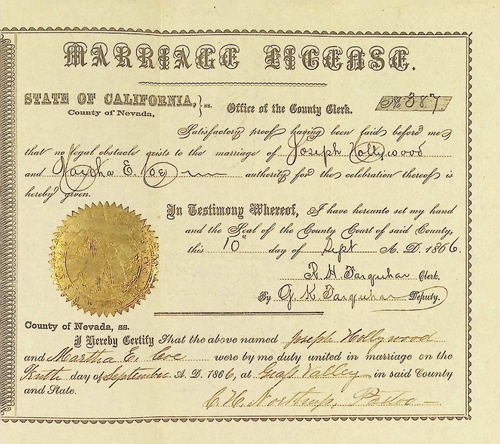 MARRIAGE LICENSE.
STATE OF CALIFORNIA, } ss. Office of the County Clerk. No 387
County of Nevada,
Satisfactory proof having been laid before me
that no legal obstacle exists to the marriage of Joseph Hollywood
and Martha E. Coe authority for the celebration thereof is
hereby given.
In Testimony Whereof, I have hereunto set my hand
and the Seal of the County Court of said County,
this 10th day of Sept A. D. 1866.
R. H. Farquhar Clerk.
By G. K. Farquhar Deputy.
County of Nevada, ss.
I Hereby Certify That the above named Joseph Hollywood
and Martha E. Coe were by me duly united in marriage on the
day of September A. D. 1866, at Grass Valley in said County
and State.
C. H. Northrup, Pastor